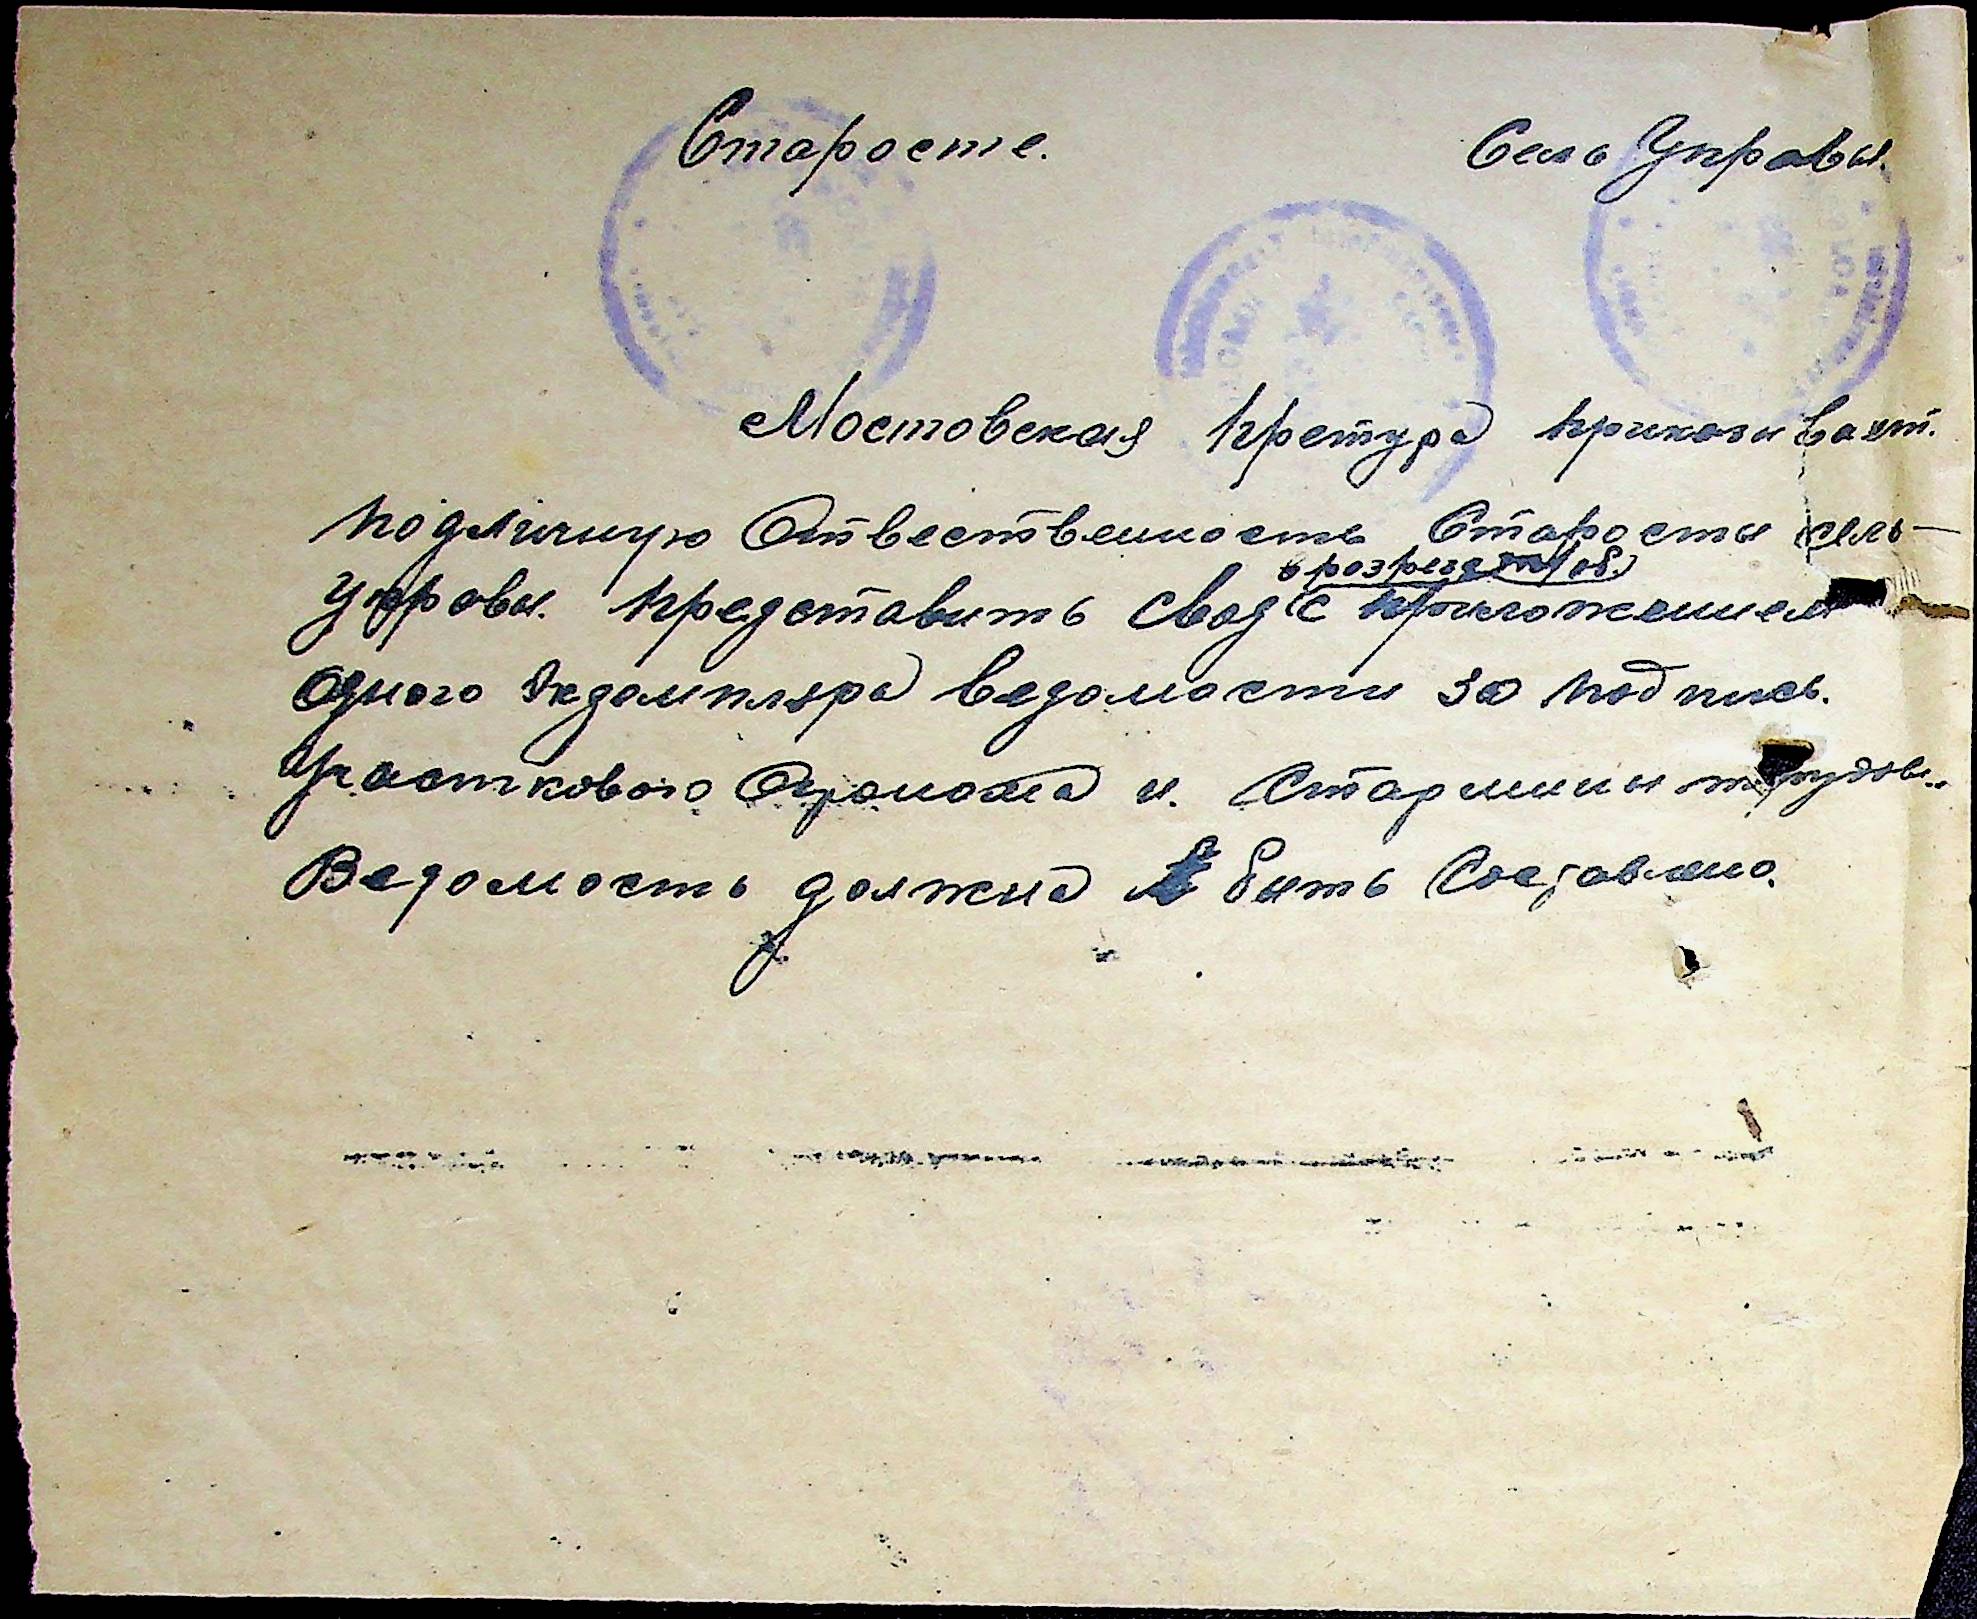 Старосте. Сель Управы.
Мостовская Претура приказывает.
под личную Отвественность Старосты сель-
в разрезе
управы. представить свод с приложением
одного Экземпляра ведомости за подпись.
Участкового Агронома и. Старшины
Ведомость должна быть Составлено.